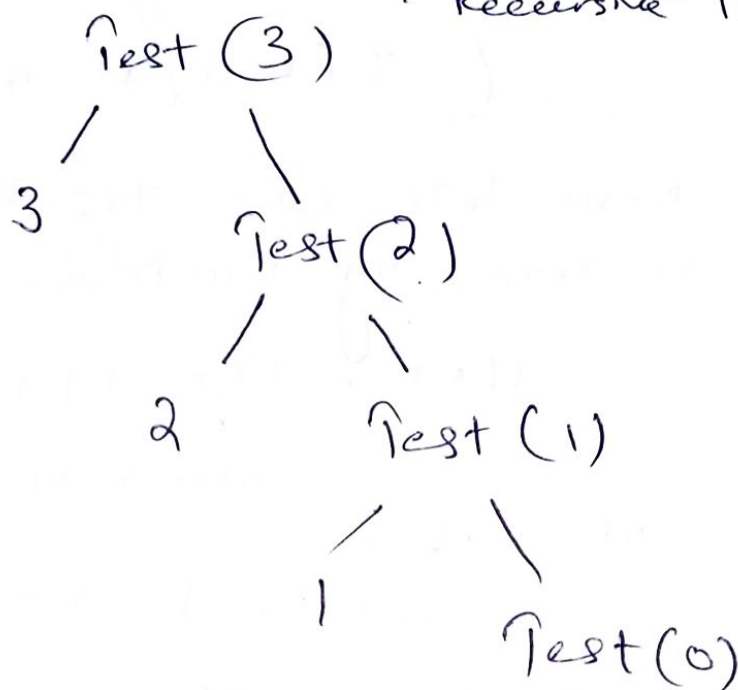 Recursive
Test (3)
3
Test (2)
2
Test (1)
1
Test (0)